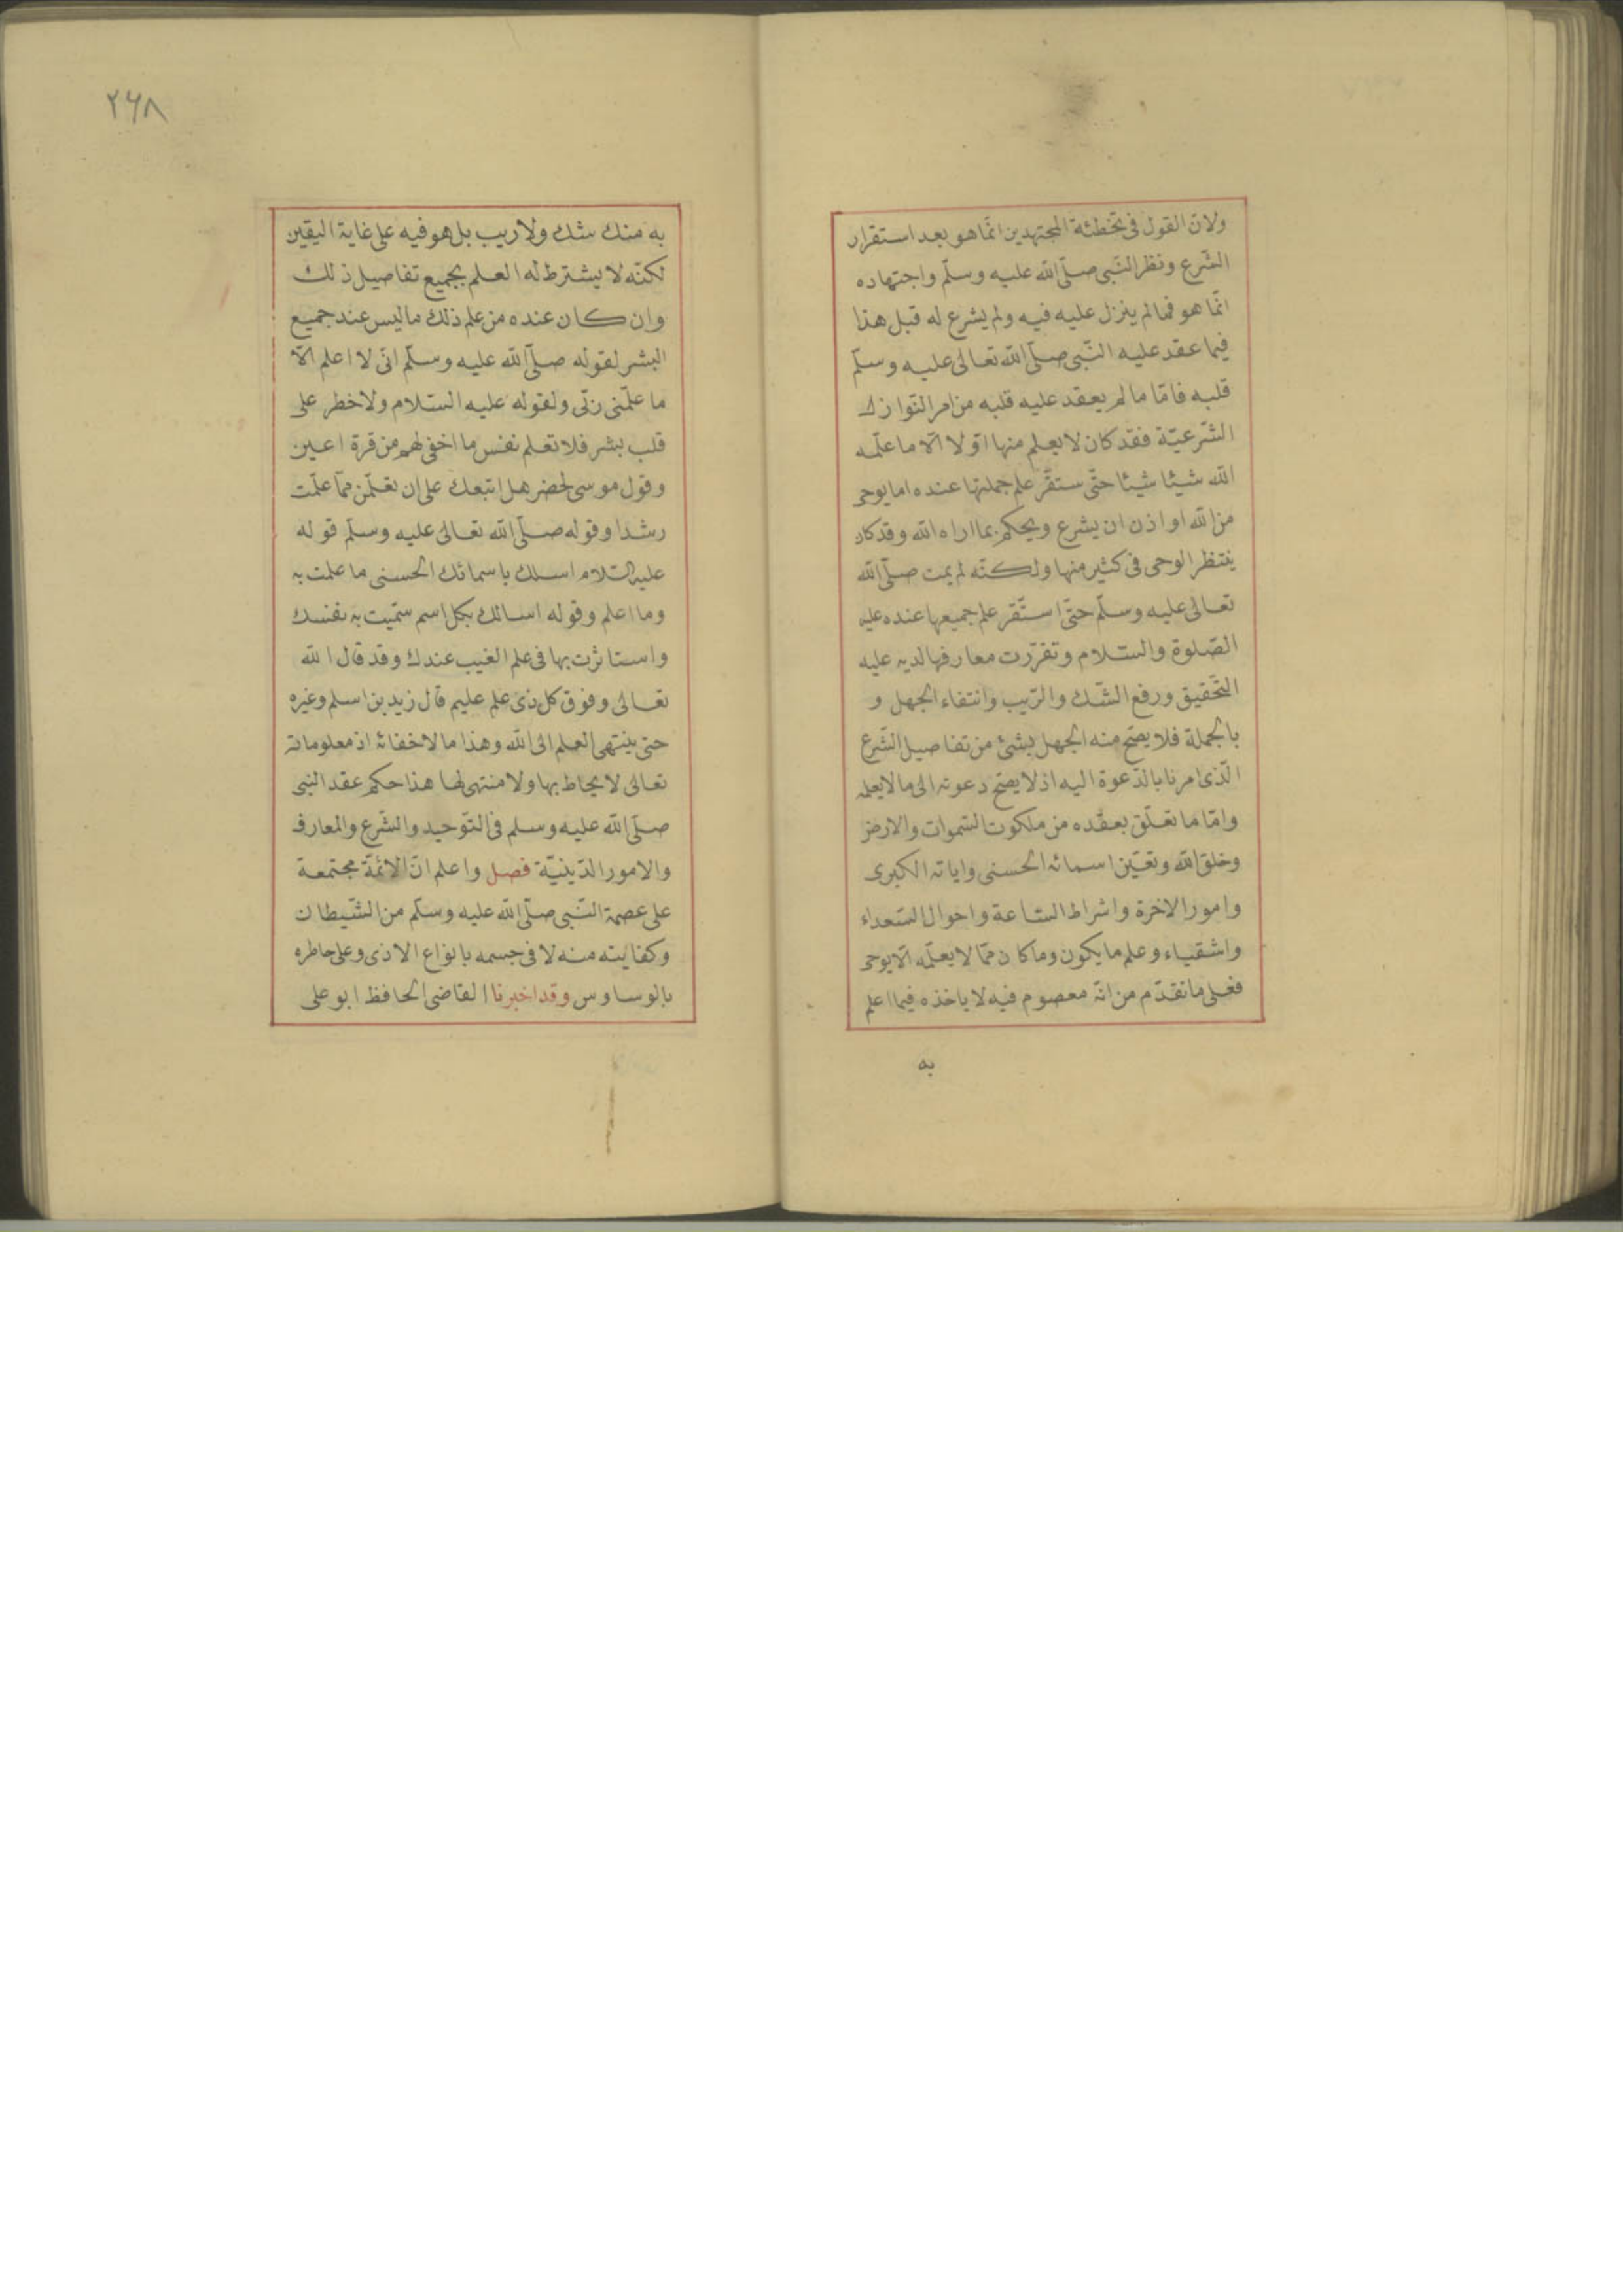 ولان القول فى تخطئة المجتهدين انما هو بعد استقرار
الشرع ونظر النبى صلى الله عليه وسلم واجتهاده
انما هو فما لم ينزل عليه فيه ولم يشرع له قبل هذا
فيما عقد عليه النبى صلى الله تعالى عليه وسلم
قلبه فاما ما لم يعقد عليه قلبه من امر النوازل
الشرعية فقد كان لا يعلم منها اولا الا ما علمه
الله شيئا شيئا حتى ستقر علم جملتها عنده اما يوحى
من الله او اذن ان يشرع ويحكم بما اراه الله وقد كان
ينتظر الوحى فى كثير منها ولكنه لم يمت صلى الله
تعالى عليه وسلم حتى استقر علم جميعها عنده عليه
الصلوة والسلام وتقررت معارفها لديه عليه
التحقيق ورفع الشك والريب وانتفاء الجهل و
بالجملة فلا يصح منه الجهل بشئ من تفاصيل الشرع
الذى امرنا بالدعوة اليه اذ لا يصح دعوته الى ما لا يعلمه
واما ما تعلق بعقده من ملكوت السموات والارض
وخلق الله وتعين اسمائه الحسنى واياته الكبرى
وامور الاخرة واشراط الساعة واحوال السعداء
واشقياء وعلم ما يكون وما كان مما لا يعلمه الا يوحى
فعلى ما تقدم من انه معصوم فيه لا ياخذه فيما اعلم
به
٢٦٨
به منك شك ولا ريب بل هو فيه على غاية اليقين
لكنه لا يشترط له العلم بجميع تفاصيل ذلك
وان كان عنده من علم ذلك ما ليس عند جميع
البشر لقوله صلى الله عليه وسلم انى لا اعلم الا
ما علمنى ربى ولقوله عليه السلام ولا خطر على
قلب بشر فلا تعلم نفس ما اخفى لهم من قرة اعين
وقول موسى لخضر هل اتبعك على ان تعلمن مما علمت
رشدا وقوله صلى الله تعالى عليه وسلم قوله
عليه السلام اسلك باسمائك الحسنى ما علمت به
وما اعلم وقوله اسالك بكل اسم سميت به نفسك
واستاثرت بها فى علم الغيب عندك وقد قال الله
تعالى وفوق كل ذى علم عليم قال زيد بن اسلم وغيره
حتى ينتهى العلم الى الله وهذا ما لا خفائه اذ معلوماته
تعالى لا يحاط بها ولا منتهى لها هذا حكم عقد النبى
صلى الله عليه وسلم فى التوحيد والشرع والمعارف
والامور الدينية فصل واعلم ان الائمة مجتمعة
على عصمة النبى صلى الله عليه وسلم من الشيطان
وكفايته منه لا فى جسمه بانواع الاذى وعلى خاطره
بالوساوس وقد اخبرنا القاضى الحافظ ابو على